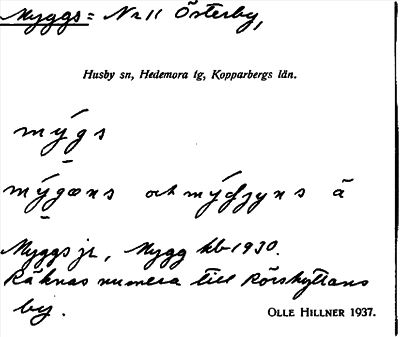 Myggs = Nr 11 Österby,
Husby sn, Hedemora tg, Kopparbergs län.
mýgs
mýgæns och mýʤyns å
Myggs jr, Mygg kb 1930.
Räknas numera till Rörshyttans
by.
OLLE HILLNER 1937.